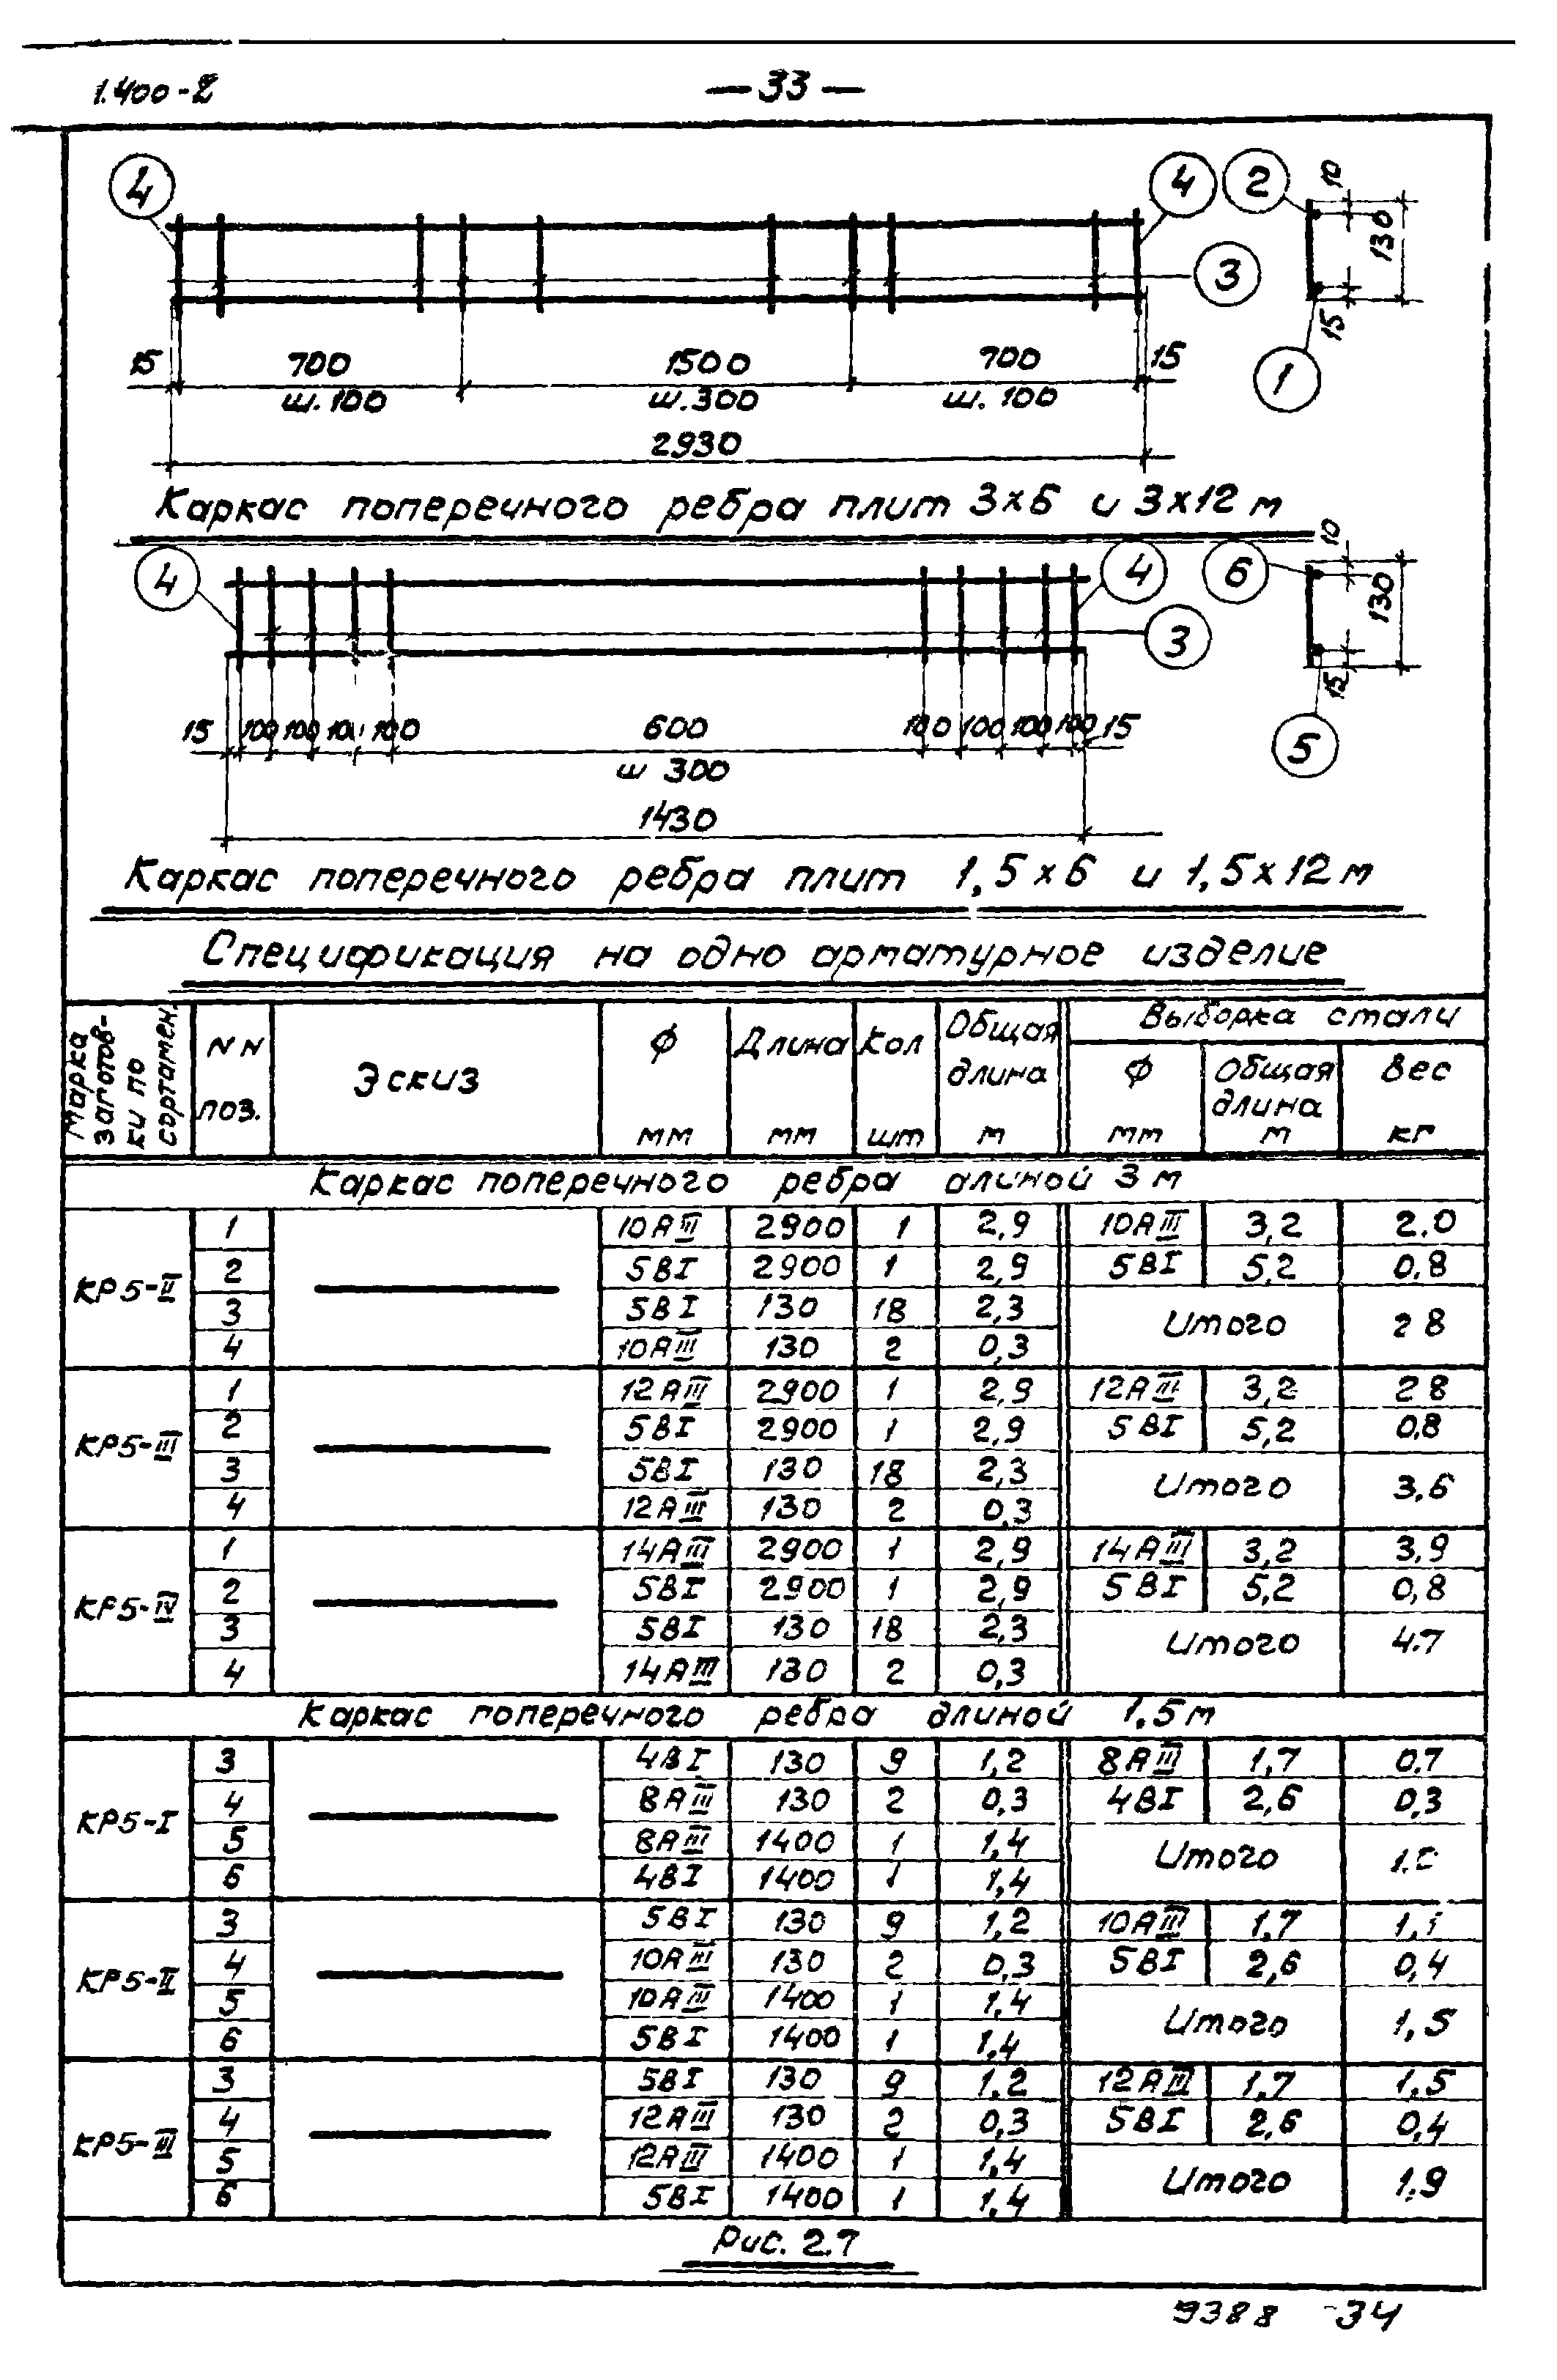 1.400-2
— 33 —
4
4
2
10
130
3
15
1
15
700
1500
700
15
ш. 100
ш. 300
ш. 100
2930
Каркас поперечного ребра плит 3х6 и 3х12 м
4
4
6
10
130
3
15
5
15 100 100 100 100 600 100 100 100 100 15
ш 300
1430
Каркас поперечного ребра плит 1,5х6 и 1,5х12 м
Спецификация на одно арматурное изделие
Марка заготов-ки по сортамен.
NN поз.
Эскиз
ф мм
Длина мм
Кол шт
Общая длина м
Выборка стали
ф мм
Общая длина м
Вес кг
Каркас поперечного ребра длиной 3 м
КР5-II
1 10АIII 2900 1 2,9 10АIII 3,2 2.0
2 5ВI 2900 1 2,9 5ВI 5,2 0.8
3 5ВI 130 18 2,3 Итого 2 8
4 10АIII 130 2 0,3
КР5-III
1 12АIII 2900 1 2,9 12АIII 3,2 2 8
2 5ВI 2900 1 2,9 5ВI 5,2 0,8
3 5ВI 130 18 2,3 Итого 3.6
4 12АIII 130 2 0,3
КР5-IV
1 14АIII 2900 1 2,9 14АIII 3,2 3,9
2 5ВI 2900 1 2,9 5ВI 5,2 0,8
3 5ВI 130 18 2,3 Итого 4.7
4 14АIII 130 2 0,3
Каркас поперечного ребра длиной 1,5 м
КР5-I
3 4ВI 130 9 1,2 8АIII 1,7 0.7
4 8АIII 130 2 0,3 4ВI 2,6 0,3
5 8АIII 1400 1 1,4 Итого 1.0
6 4ВI 1400 1 1,4
КР5-II
3 5ВI 130 9 1,2 10АIII 1,7 1,1
4 10АIII 130 2 0,3 5ВI 2,6 0,4
5 10АIII 1400 1 1,4 Итого 1,5
6 5ВI 1400 1 1,4
КР5-III
3 5ВI 130 9 1,2 12АIII 1,7 1,5
4 12АIII 130 2 0,3 5ВI 2,6 0,4
5 12АIII 1400 1 1,4 Итого 1,9
6 5ВI 1400 1 1,4
Рис. 2.7
9388 34